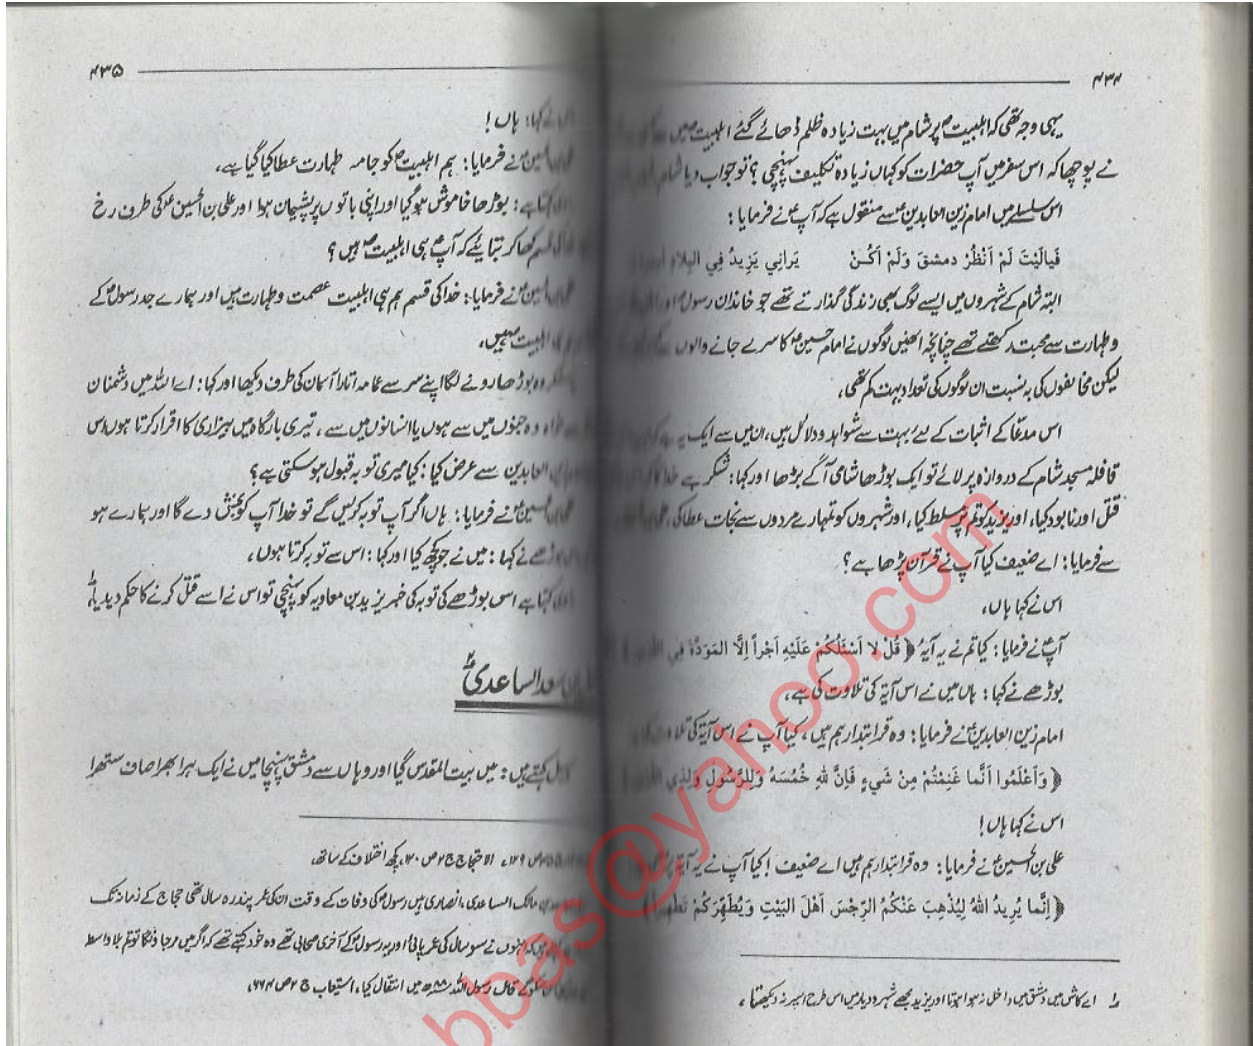 ۴۳۴
یہی وجہ تھی کہ اہلبیتؑ پر شام میں بہت زیادہ ظلم ڈھائے گئے اہلبیتؑ میں سے
نے پوچھا کہ اس سفر میں آپ حضرات کو کہاں زیادہ تکلیف پہنچی؟ تو جواب دیا شام
اس سلسلے میں امام زین العابدینؑ سے منقول ہے کہ آپؑ نے فرمایا:
فَيالَيْتَ لَمْ اَنْظُرْ دمشقَ وَلَمْ اَكُنْ يَراني يَزيدُ فِي البِلادِ
البتہ شام کے شہروں میں ایسے لوگ بھی زندگی گذارتے تھے جو خاندان رسولؐ اور
و طہارت سے محبت رکھتے تھے چنانچہ انھیں لوگوں نے امام حسینؑ کا سر لے جانے والوں
لیکن مخالفوں کی بہ نسبت ان لوگوں کی تعداد بہت کم تھی،
اس مدعّا کے اثبات کے لئے بہت سے شواہد و دلائل ہیں، ان میں سے ایک یہ ہے کہ
قافلہ مسجد شام کے دروازہ پر لائے تو ایک بوڑھا شامی آگے بڑھا اور کہا: شکر ہے خدا کا
قتل اور نابود کیا، اور یزید کو تم پر مسلط کیا، اور شہروں کو تمہارے مردوں سے نجات عطا کی،
سے فرمایا: اے ضعیف کیا آپ نے قرآن پڑھا ہے؟
اس نے کہا ہاں،
آپؑ نے فرمایا: کیا تم نے یہ آیہ ﴿ قُلْ لا اَسْئَلُكُمْ عَلَيْهِ اَجْراً اِلَّا المَوَدَّةَ فِي
بوڑھے نے کہا: ہاں میں نے اس آیۃ کی تلاوت کی ہے،
امام زین العابدینؑ نے فرمایا: وہ قرابتدار ہم ہیں، کیا آپ نے اس آیۃ کی تلاوت
﴿ وَاعْلَمُوا اَنَّما غَنِمْتُمْ مِنْ شَيءٍ فَاِنَّ للهِ خُمُسَهُ وَلِلرَّسُولِ وَلِذِي
اس نے کہا ہاں!
علی بن الحسینؑ نے فرمایا: وہ قرابتدار ہم ہیں اے ضعیف! کیا آپ نے یہ آیۃ
﴿ اِنَّما يُريدُ اللهُ لِيُذْهِبَ عَنْكُمُ الرِّجْسَ اَهْلَ البَيْتِ وَيُطَهِّرَكُمْ تَطْهيراً ﴾
۱؎ اے کاش میں دمشق میں داخل نہ ہوا ہوتا اور یزید مجھے شہر و دیار میں اس طرح اسیر نہ دیکھتا،
۴۳۵
نے کہا: ہاں!
نے فرمایا: ہم اہلبیتؑ کو جامہ طہارت عطا کیا گیا ہے،
کہتا ہے: بوڑھا خاموش ہو گیا اور اپنی باتوں پر پشیمان ہوا اور علی بن الحسینؑ کی طرف رخ
قسم کھا کر بتائیے کہ آپؑ ہی اہلبیتؑ ہیں؟
نے فرمایا: خدا کی قسم ہم ہی اہلبیت عصمت و طہارت ہیں اور ہمارے جد رسولؐ کے
اہلبیتؑ ہیں،
وہ بوڑھا رونے لگا اپنے سر سے عمامہ اتارا آسمان کی طرف دیکھا اور کہا: اے اللہ میں دشمنان
وہ جنوں میں سے ہوں یا انسانوں میں سے، تیری بارگاہ میں بیزاری کا اقرار کرتا ہوں اس
العابدین سے عرض کیا: کیا میری توبہ قبول ہو سکتی ہے؟
نے فرمایا: ہاں اگر آپ توبہ کریں گے تو خدا آپ کو بخش دے گا اور ہمارے ہو
بوڑھے نے کہا: میں نے جو کچھ کیا اور کہا: اس سے توبہ کرتا ہوں،
کہتا ہے اس بوڑھے کی توبہ کی خبر یزید بن معاویہ کو پہنچی تو اس نے اسے قتل کرنے کا حکم دیدیا،۱؎
سعد الساعدیؓ ۲؎
کہتے ہیں: میں بیت المقدس گیا اور وہاں سے دمشق پہنچا میں نے ایک ہرا بھرا صاف ستھرا
ص ۱۲۹، الاحتجاج ج ۲ ص ۱۲۰، کچھ اختلاف کے ساتھ،
بن مالک الساعدی، انصاری ہیں رسولؐ کی وفات کے وقت ان کی عمر پندرہ سال تھی حجاج کے زمانہ تک
انہوں نے سو سال کی عمر پائی اور یہ رسولؐ کے آخری صحابی تھے وہ خود کہتے تھے کہ اگر میں مر جاؤنگا تو تم بلا واسطہ
کے قال رسول اللہ سنہ ۸۸ھ میں انتقال کیا، استیعاب ج ۲ ص ۶۶۴،
bbas@yahoo.com